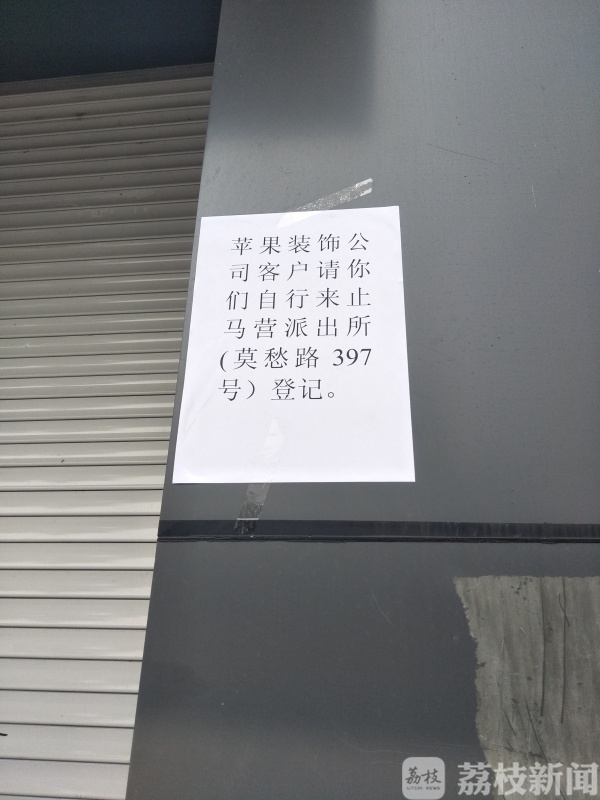 苹果装饰公
司客户请你
们自行来止
马营派出所
(莫愁路 397
号）登记。
荔枝
LITCHI NEWS
荔枝新闻